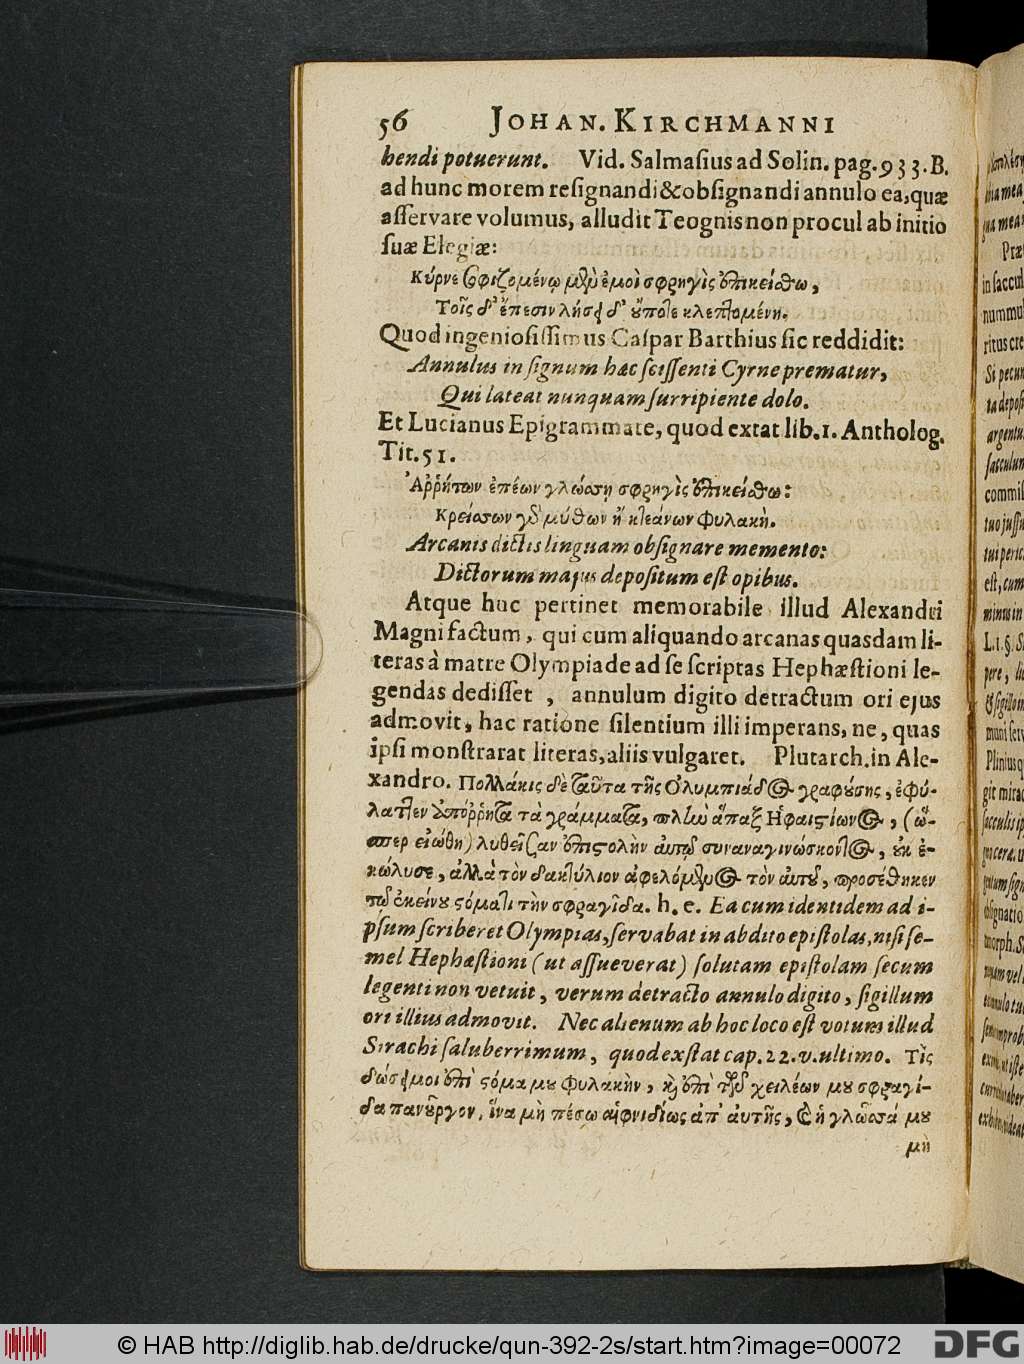 56 JOHAN. KIRCHMANNI
hendi potuerunt. Vid. Salmaſius ad Solin. pag. 933. B.
ad hunc morem reſignandi & obſignandi annulo ea, quæ
aſſervare volumus, alludit Teognis non procul ab initio
ſuæ Elegiæ:
Κύρνε σοφιζομένῳ μὲν ἐμοὶ σφρηγὶς ἐπικείσθω,
Τοῖς δ' ἔπεσιν λήσει δ' οὔποτε κλεπτομένη.
Quod ingenioſiſſimus Caſpar Barthius ſic reddidit:
Annulus in ſignum hac ſciſſenti Cyrne prematur,
Qui lateat nunquam ſurripiente dolo.
Et Lucianus Epigrammate, quod extat lib. 1. Antholog.
Tit. 51.
Ἀῤῥήτων ἐπέων γλώσσῃ σφρηγὶς ἐπικείσθω:
Κρείσσων γὸ μύθων ἢ κτεάνων φυλακὴ.
Arcanis dictis linguam obſignare memento:
Dictorum majus depoſitum eſt opibus.
Atque huc pertinet memorabile illud Alexandri
Magni factum, qui cum aliquando arcanas quasdam li-
teras à matre Olympiade ad ſe ſcriptas Hephæſtioni le-
gendas dediſſet, annulum digito detractum ori ejus
admovit, hac ratione ſilentium illi imperans, ne, quas
ipſi monſtrarat literas, aliis vulgaret. Plutarch. in Ale-
xandro. Πολλάκις δὲ ταῦτα τῆς Ολυμπιάδος γραφούσης, ἐφύ-
λαττεν ἀπόῤῥητα τὰ γράμματα, πλὴν ἅπαξ Ηφαιστίωνος, (ὥσ-
περ εἰώθη) λυθεῖσαν ἐπιστολὴν αὐτῷ συναναγινώσκοντος, οὐκ ἐ-
κώλυσε, ἀλλὰ τὸν δακτύλιον ἀφελόμενος τὸν αὐτοῦ, προσέθηκεν
τῷ ἐκείνου στόματι τὴν σφραγῖδα. h. e. Ea cum identidem ad i-
pſum ſcriberet Olympias, ſervabat in abdito epiſtolas, niſi ſe-
mel Hephæſtioni (ut aſſueverat) ſolutam epiſtolam ſecum
legenti non vetuit, verum detracto annulo digito, ſigillum
ori illius admovit. Nec alienum ab hoc loco eſt votum illud
Sirachi ſaluberrimum, quod exſtat cap. 22. v. ultimo. Τὶς
δώσει μοι ἐπὶ στόμα μου φυλακὴν, καὶ ἐπὶ τῶν χειλέων μου σφραγί-
δα πανοῦργον, ἵνα μὴ πέσω αἰφνιδίως ἀπ' αὐτῆς, καὶ ἡ γλῶσσά μου
μὴ
© HAB http://diglib.hab.de/drucke/qun-392-2s/start.htm?image=00072
DFG